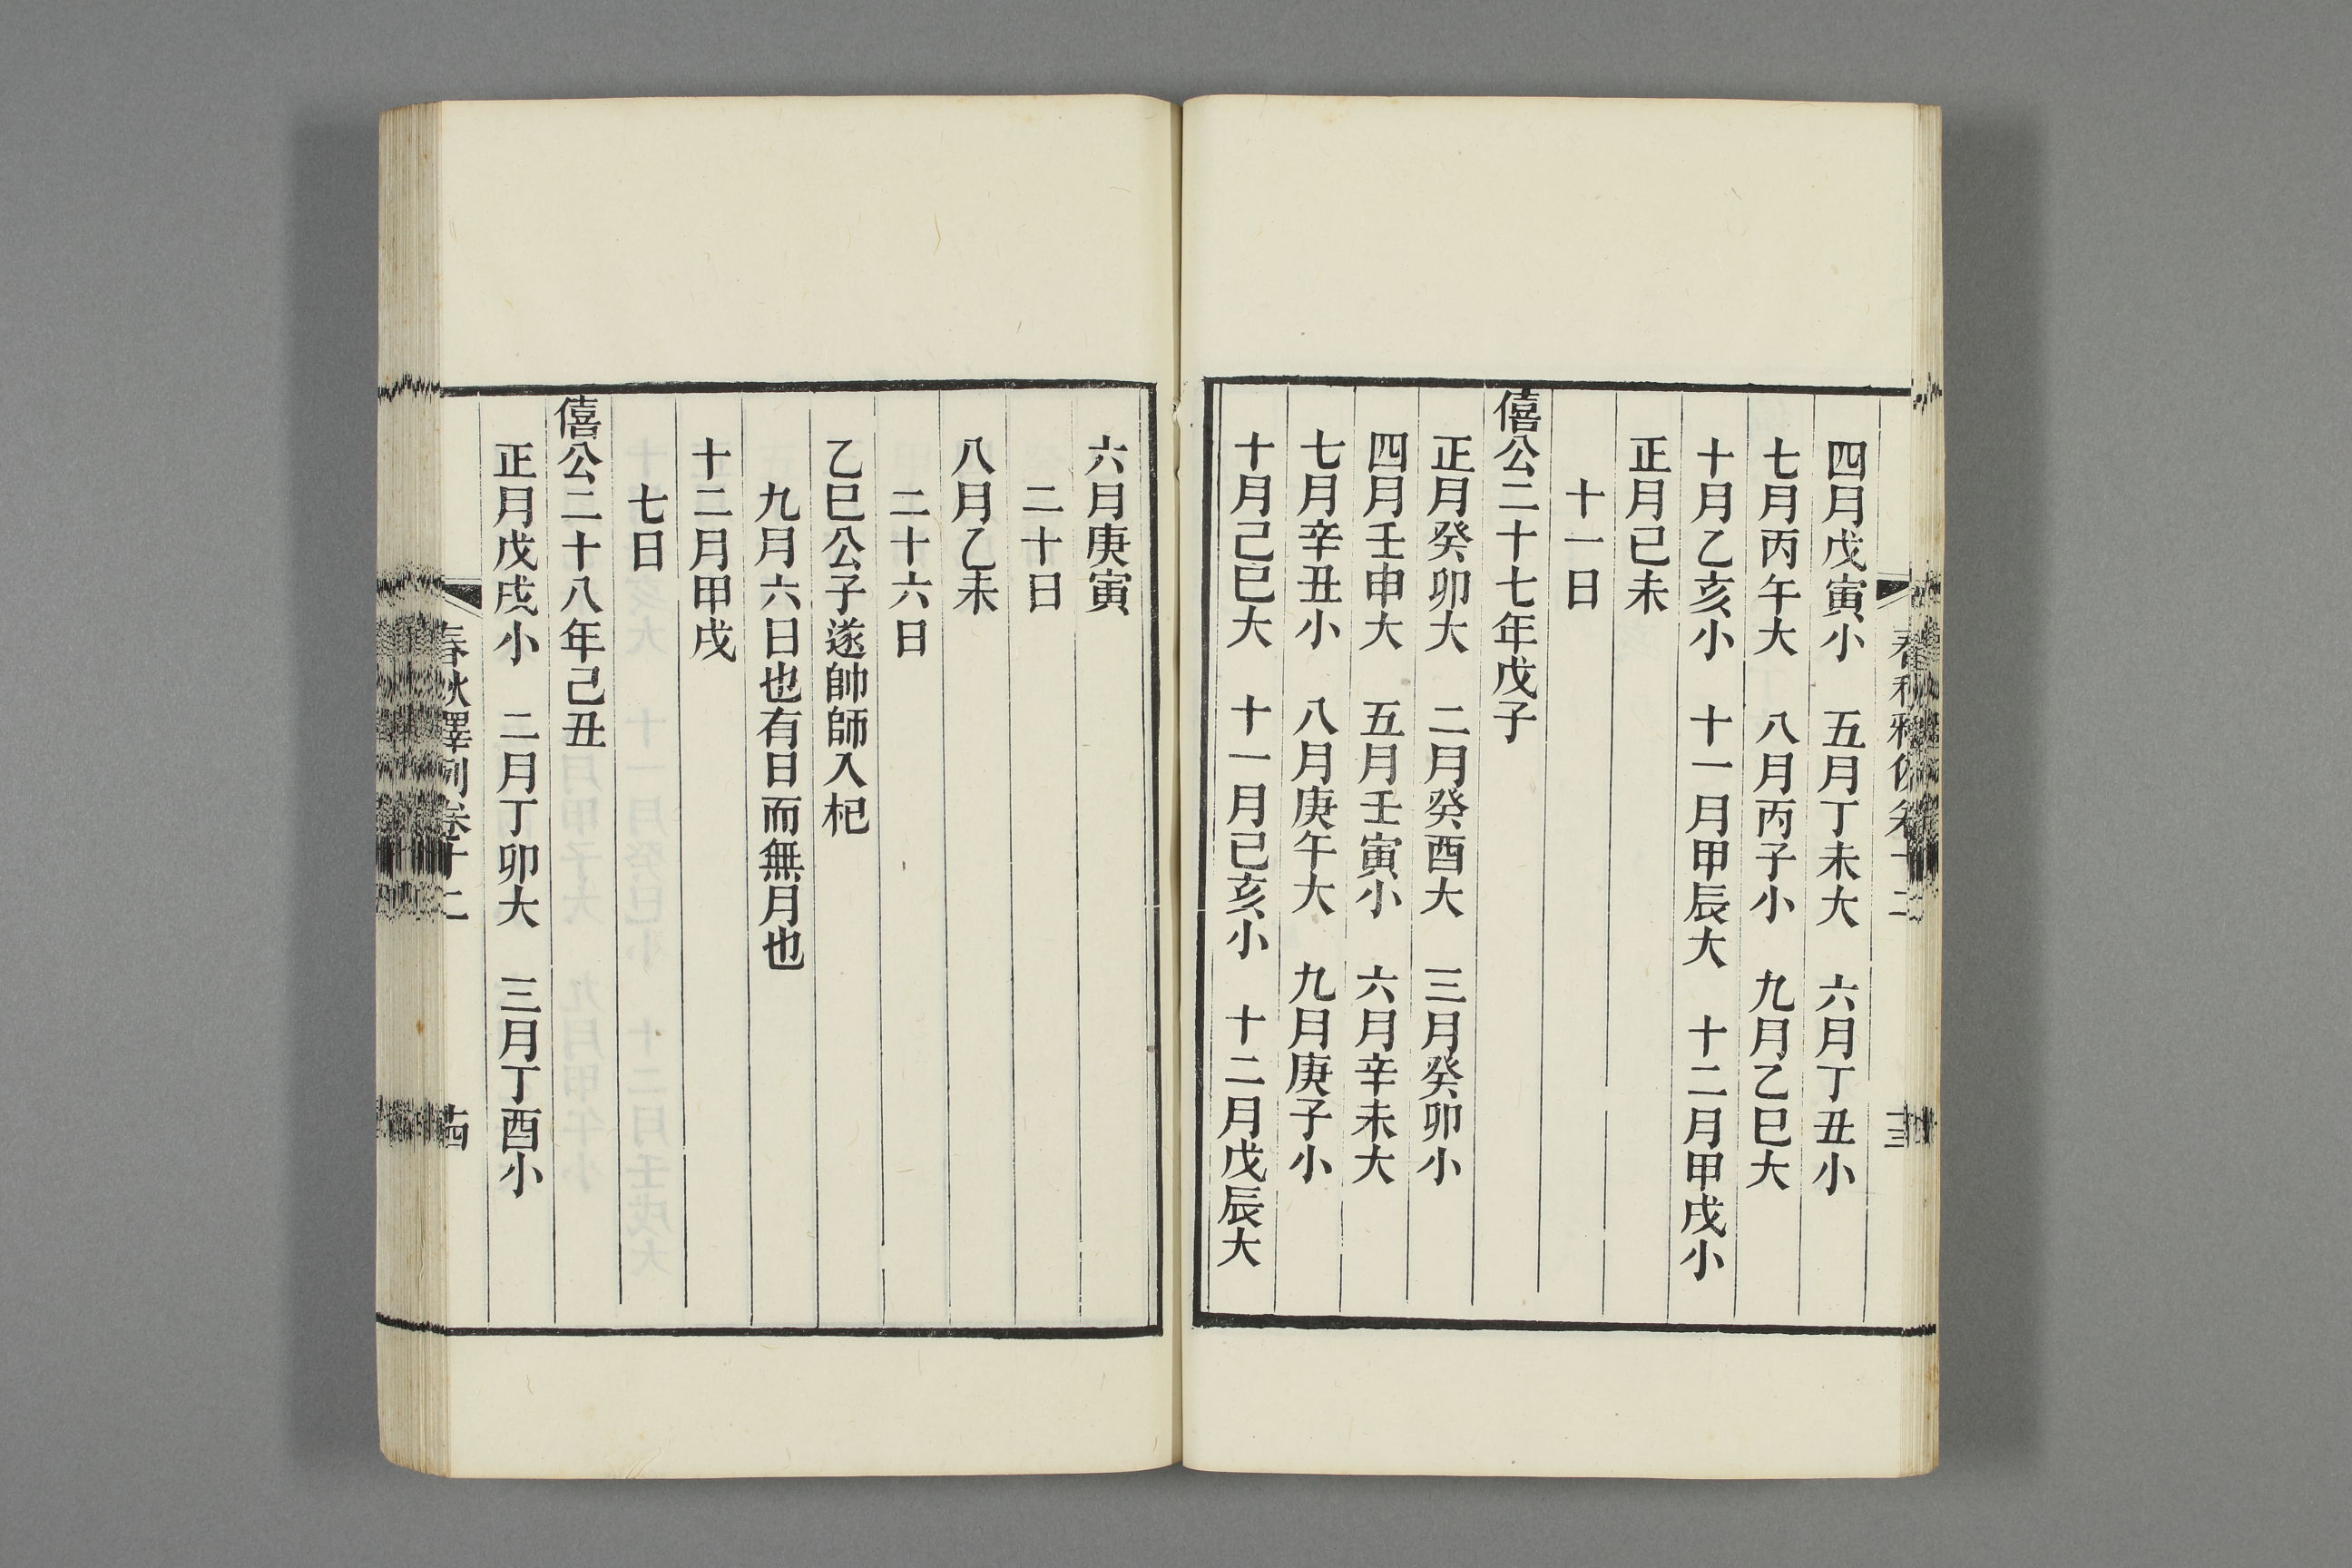 春秋釋例卷十二
十三
四月戊寅小　五月丁未大　六月丁丑小
七月丙午大　八月丙子小　九月乙巳大
十月乙亥小　十一月甲辰大　十二月甲戌小
正月己未
十一日
僖公二十七年戊子
正月癸卯大　二月癸酉大　三月癸卯小
四月壬申大　五月壬寅小　六月辛未大
七月辛丑小　八月庚午大　九月庚子小
十月己巳大　十一月己亥小　十二月戊辰大
六月庚寅
二十日
八月乙未
二十六日
乙巳公子遂帥師入杞
九月六日也有日而無月也
十二月甲戌
七日
僖公二十八年己丑
正月戊戌小　二月丁卯大　三月丁酉小
春秋釋例卷十二
十四